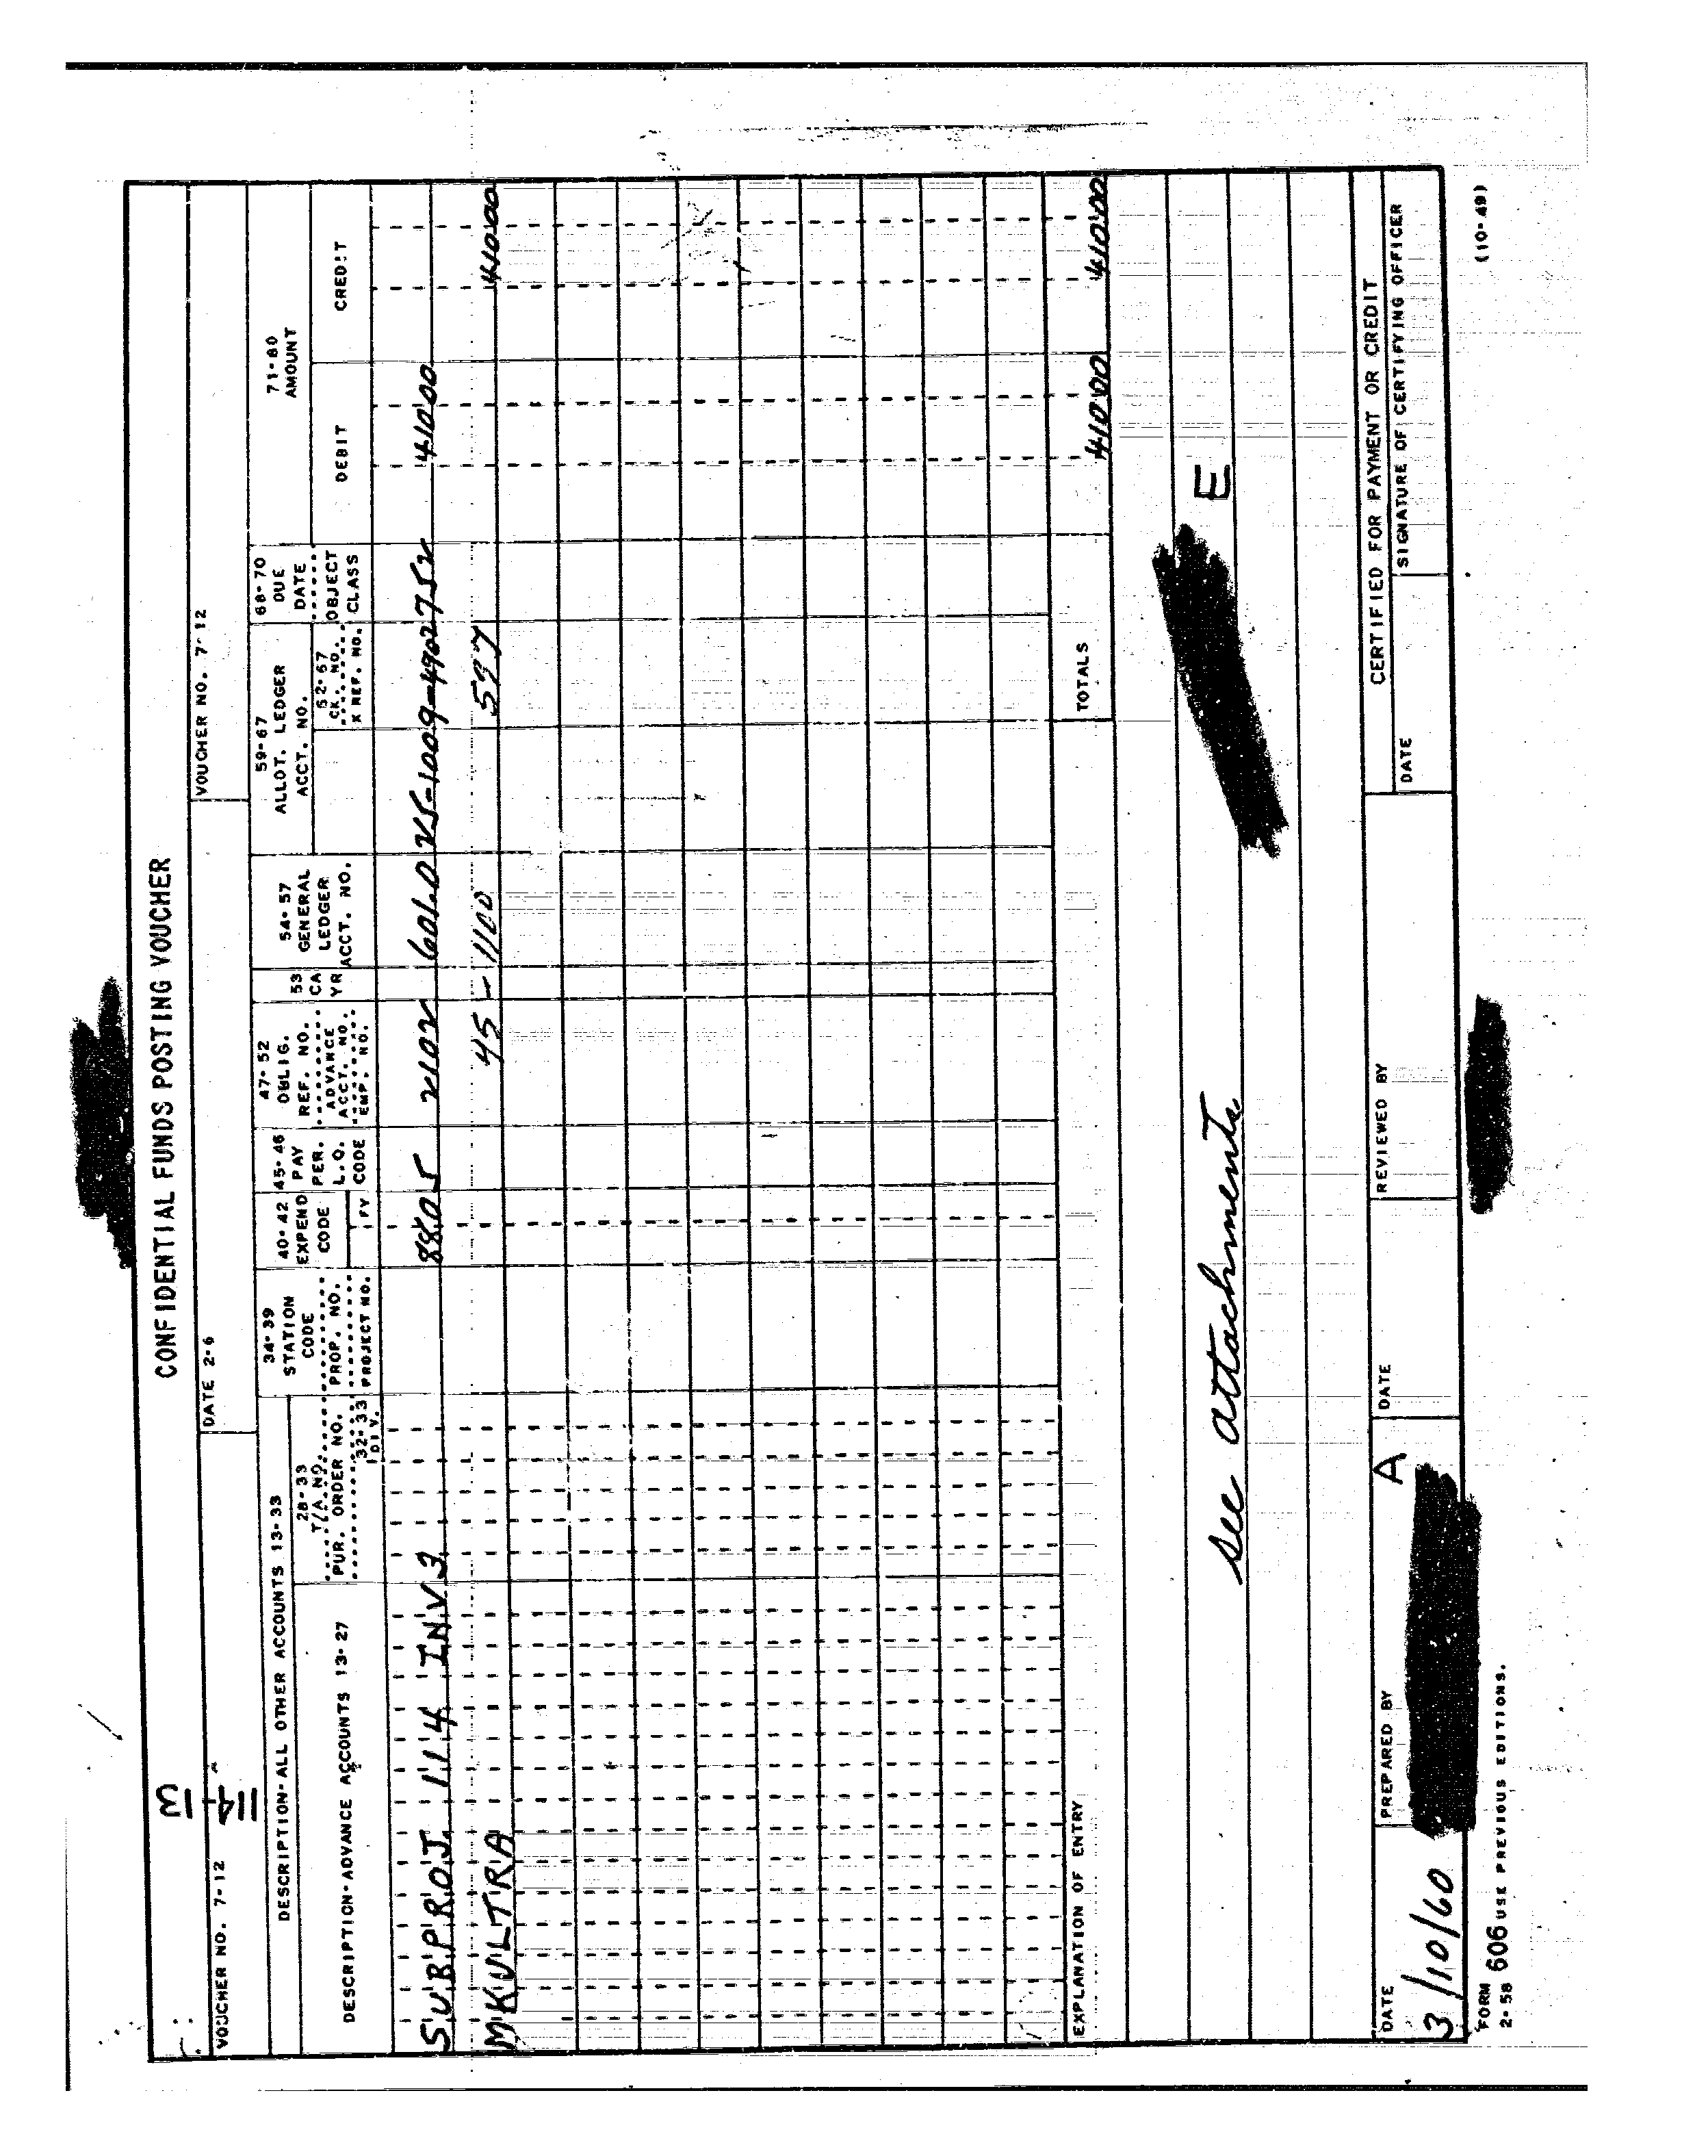 3
114
CONFIDENTIAL FUNDS POSTING VOUCHER
VOUCHER NO. 7-12
DATE 2-6
VOUCHER NO. 7-12
DESCRIPTION-ALL OTHER ACCOUNTS 13-33
DESCRIPTION-ADVANCE ACCOUNTS 13-27
28-33
T/A NO.
PUR. ORDER NO.
32-33
DIV.
34-39
STATION
CODE
PROP. NO.
PROJECT NO.
40-42
EXPEND
CODE
FY
45-46
PAY
PER.
L.O.
CODE
47-52
OBLIG.
REF. NO.
ADVANCE
ACCT. NO.
EMP. NO.
53
CA
YR
54-57
GENERAL
LEDGER
ACCT. NO.
59-67
ALLOT. LEDGER
ACCT. NO.
52-67
CK. NO.
X REF. NO.
68-70
DUE
DATE
OBJECT
CLASS
71-80
AMOUNT
DEBIT
CREDIT
SUBPROJ 114 INV 3 8805 2102 601.0 25-1009-4902752 41000
MKULTRA 45-1100 577 41000
TOTALS 41000 41000
EXPLANATION OF ENTRY
See attachments E
CERTIFIED FOR PAYMENT OR CREDIT
DATE
PREPARED BY
A
DATE
REVIEWED BY
DATE
SIGNATURE OF CERTIFYING OFFICER
3/10/60
FORM
2-58
606 USE PREVIOUS EDITIONS.
(10-49)